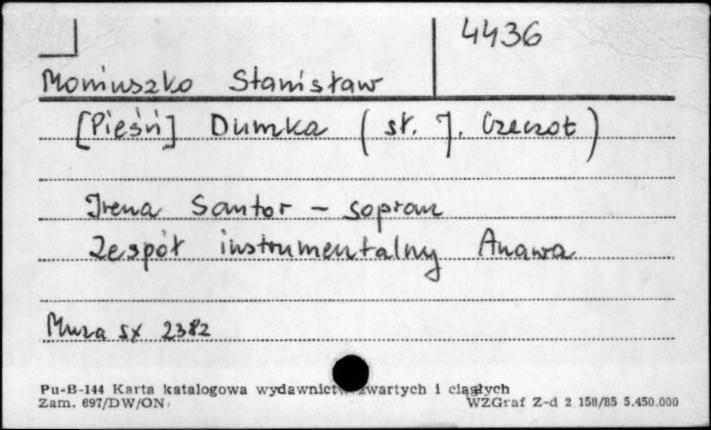 4436
Moniuszko Stanisław
[Pieśń] Dumka (sł. J. Czeczot)
Irena Santor - sopran
Zespół instrumentalny Anawa
Muza sx 2382
Pu-B-144 Karta katalogowa wydawnictw zwartych i ciągłych
Zam. 697/DW/ON WZGraf Z-d 2 158/85 5.450.000